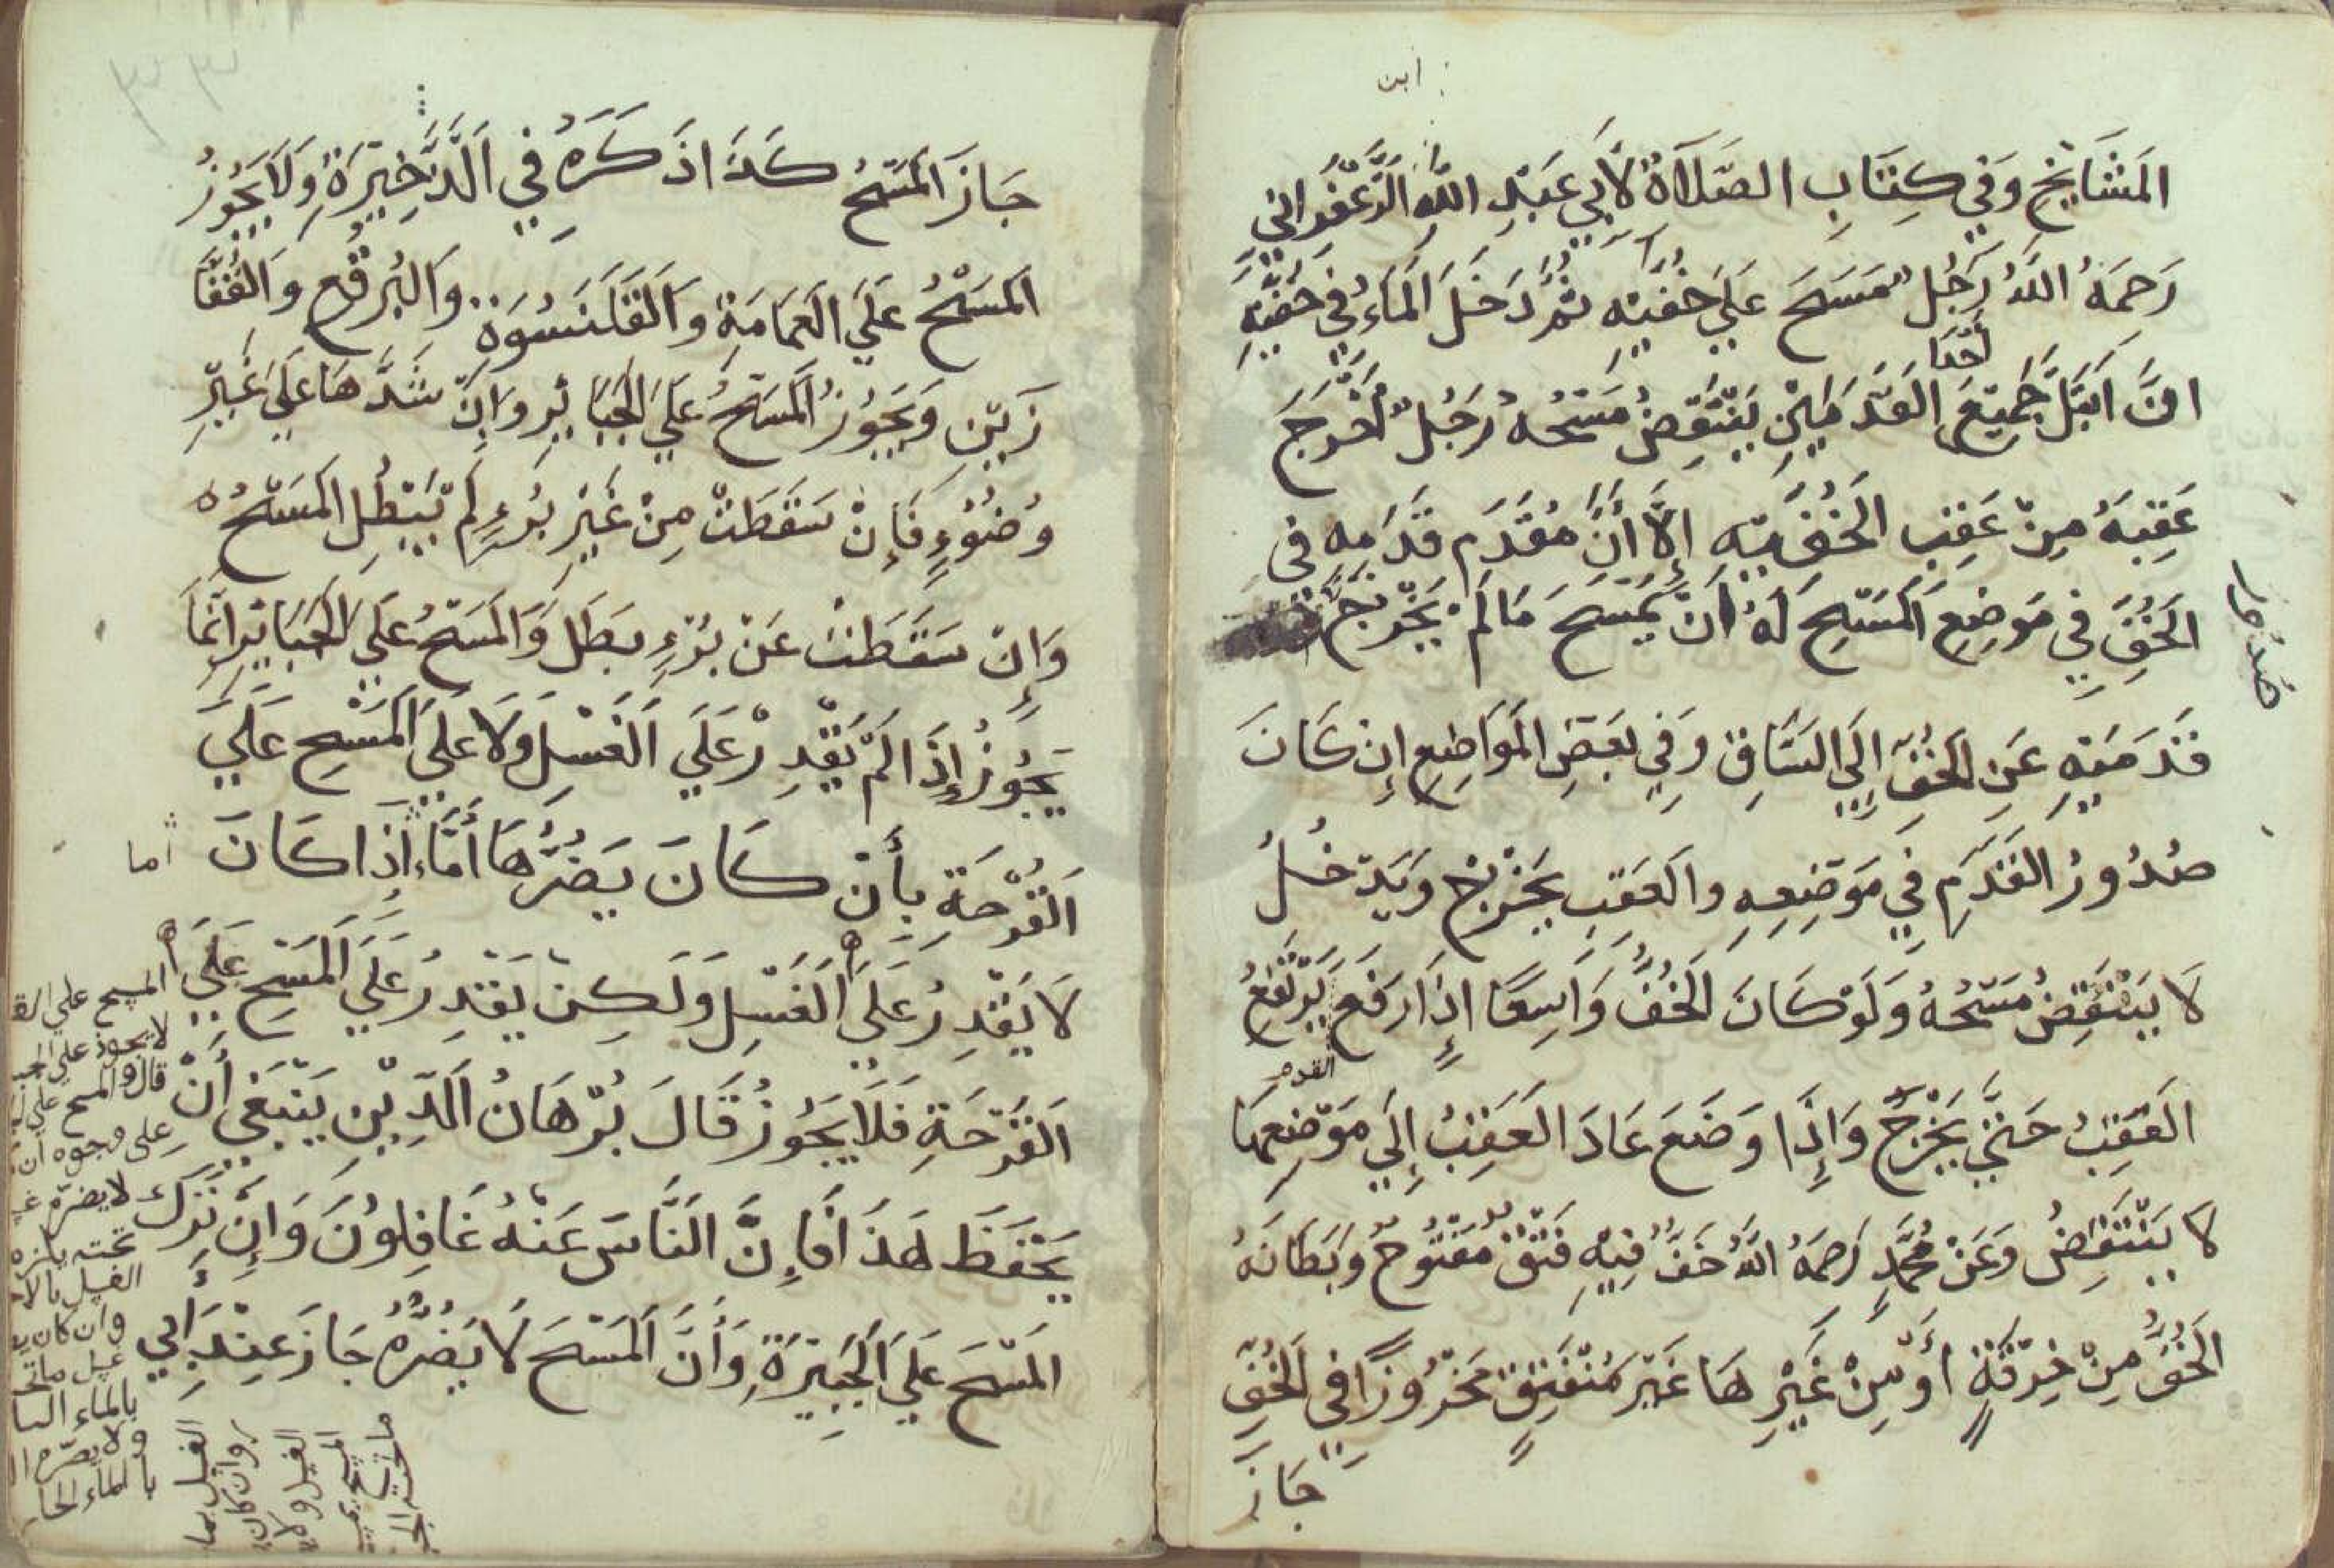 ابن
المَشَايِخِ وَفِي كِتَابِ الصَّلَاةِ لأَبِي عَبْدِ اللَّهِ الزَّعْفَرَانِي
رَحِمَهُ اللَّهُ رَجُلٌ مَسَحَ عَلَى خُفَّيْهِ ثُمَّ دَخَلَ المَاءُ فِي خُفَّيْهِ
انَّ ابْتَلَّ جَمِيْعَ القَدَمَيْنِ يَنْتَقِضُ مَسْحُهُ رَجُلٌ اُخْرِجَ
عَقِبَهُ مِنْ عَقِبِ الخُفَّيْهِ إِلَّا أَنَّ مُقَدَّمِ قَدَمِهِ فِي
الخُفِّ فِي مَوْضِعِ المَسْحِ لَهُ اَنْ يَمْسَحَ مَا لَمْ يَخْرُجْ
صُدُورُ
قَدَمَيْهِ عَنِ الخُفِّ إِلَى السَّاقِ وَفِي بَعْضِ المَوَاضِعِ إِنْ كَانَ
صُدُوْرُ القَدَمِ فِي مَوْضِعِهِ والعَقِبِ يَخْرُجُ وَيَدْخُلُ
لَا يَنْتَقِضُ مَسْحُهُ وَلَوْ كَانَ الخُفُّ وَاسِعًا إِذَا رَفَعَ يَرْتَفِعُ
القدم
العَقِبُ حَتَّي يَخْرُجَ وَإِذَا وَضَعَ عَادَ العَقِبُ إِلَى مَوْضِعِهَا
لَا يَنْتَقِضُ وَعَنْ مُحَمَّدٍ رَحِمَهُ اللَّهُ خُفٌّ فِيْهِ فَتْقٌ مَفْتُوْحٌ وَبِطَانَةُ
الخُفِّ مِنْ خِرْقَةٍ اَوْ مِنْ غَيْرِهَا غَيْرَ مُنْفَتِقٍ مَخْرُوْزًا فِي الخُفِّ
جَازَ
جَازَ المَسْحُ كَذَا ذَكَرَهُ فِي الذَّخِيْرَةِ وَلَا يَجُوْزُ
المَسْحُ عَلَى العِمَامَةِ وَالقَلَنْسُوَةِ وَالبُرْقُعِ وَالقُفَّا
زَيْنِ وَيَجُوْزُ المَسْحُ عَلَى الجَبَائِرِ وَإِنْ شَدَّهَا عَلَى غَيْرِ
وُضُوْءٍ فَإِنْ سَقَطَتْ مِنْ غَيْرِ بُرْءٍ لَمْ يَبْطُلِ المَسْحُ
وَإِنْ سَقَطَتْ عَنْ بُرْءٍ بَطَلَ وَالمَسْحُ عَلَى الجَبَائِرِ إِنَّمَا
يَجُوْزُ إِذَا لَمْ يَقْدِرْ عَلَى الغَسْلِ وَلَا عَلَى المَسْحِ عَلَى
القُرْحَةِ بِأَنْ كَانَ يَضُرُّهَا أَمَّا إِذَا كَانَ
اما
لَا يَقْدِرُ عَلَى الغَسْلِ وَلَكِنْ يَقْدِرُ عَلَى المَسْحِ عَلَى
القُرْحَةِ فَلَا يَجُوْزُ قَالَ بُرْهَانُ الدِّيْنِ يَنْبَغِي أَنْ
يَحْفَظَ هَذَا فَإِنَّ النَّاسَ عَنْهُ غَافِلُوْنَ وَإِنْ تَرَكَ
المَسْحَ عَلَى الجَبِيْرَةِ وَأَنَّ المَسْحَ لَا يَضُرُّهُ جَازَ عِنْدَ أَبِي
المسح علي
لا يجوز علي
قال والمسح علي
علي وجوه ان
لا يضره
تحته يلزمه
الغسل بالا
وان كان
غسل ما
بالماء
ولا يضره
بالماء الحا
الغسل بما
وان كان
الغسل ولا